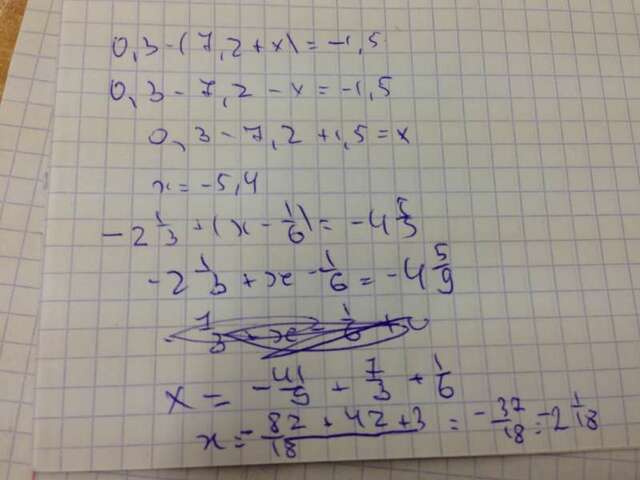 0,3-(7,2+x)=-1,5
0,3-7,2-x=-1,5
0,3-7,2+1,5=x
x=-5,4
-2 1/3+(x-1/6)=-4 5/9
-2 1/3+x-1/6=-4 5/9
x=-41/9+7/3+1/6
x=-82+42+3/18=-37/18=-2 1/18